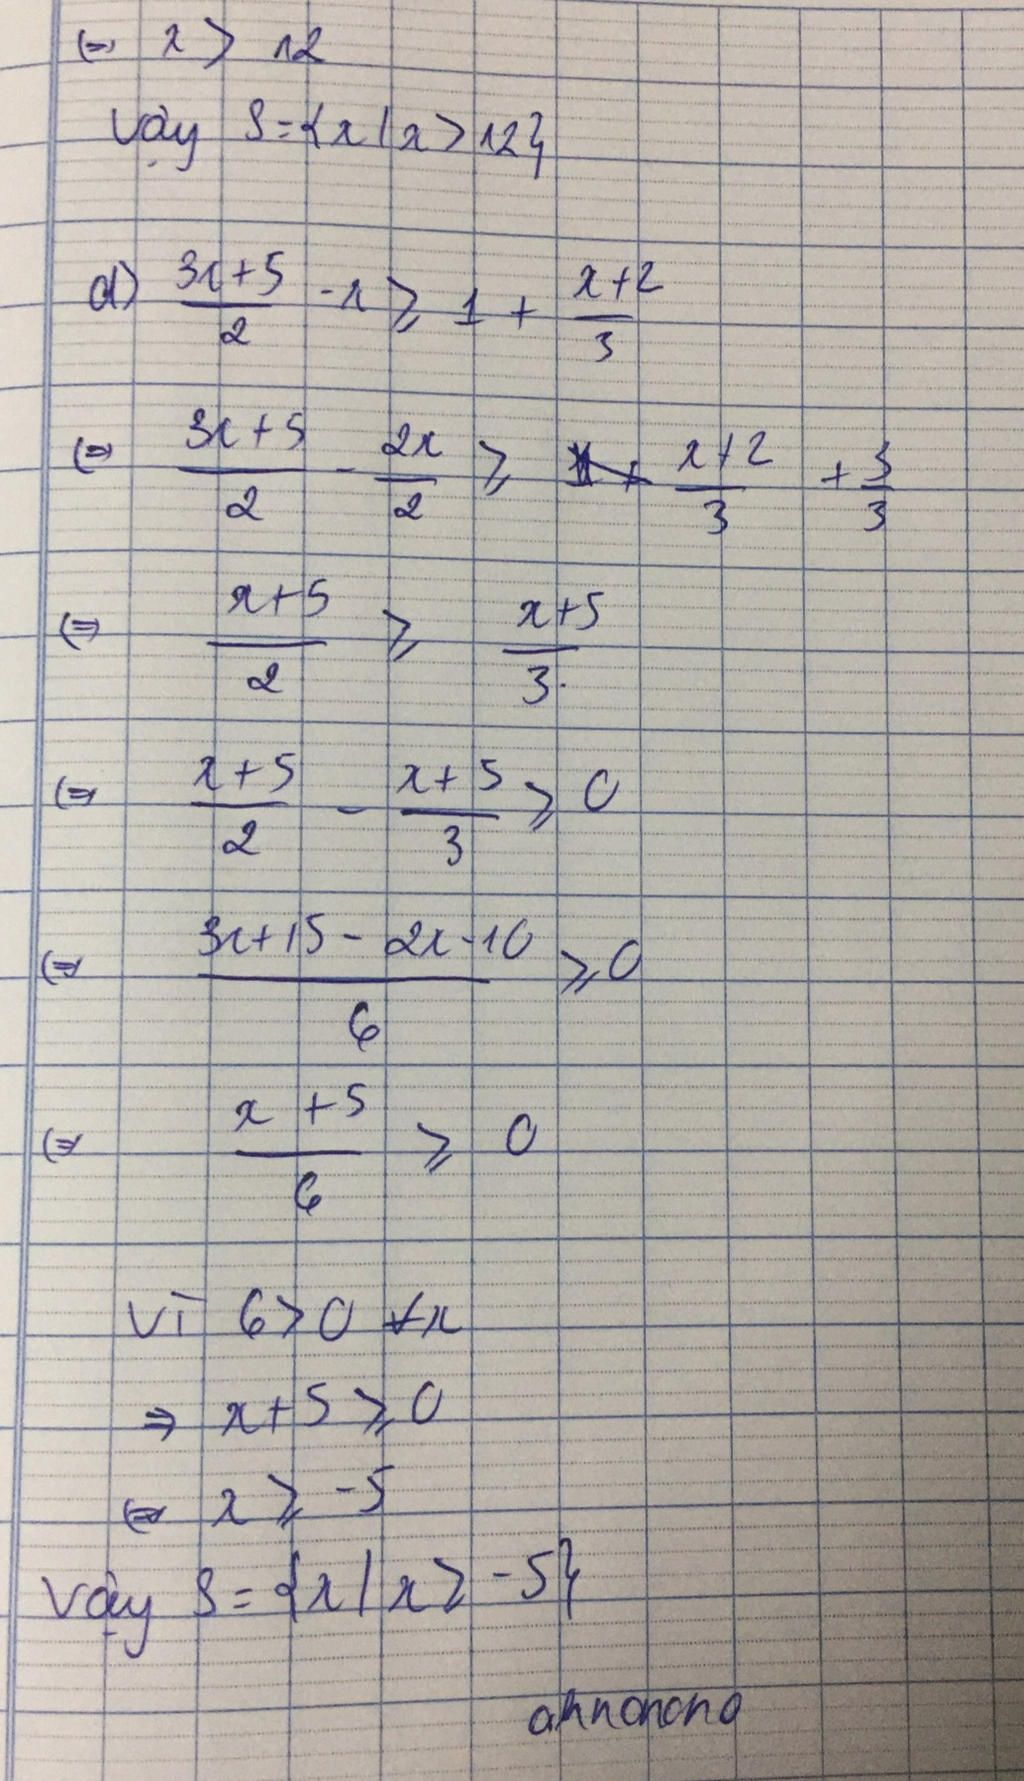 ⇔ x > 12
Vậy S={x/x>12}
d) (3x+5)/2 - x ≥ 1 + (x+2)/3
⇔ (3x+5)/2 - 2x/2 ≥ (x+2)/3 + 3/3
⇔ (x+5)/2 ≥ (x+5)/3
⇔ (x+5)/2 - (x+5)/3 ≥ 0
⇔ (3x+15-2x-10)/6 ≥ 0
⇔ (x+5)/6 ≥ 0
Vì 6>0 ∀x
⇒ x+5 ≥ 0
⇔ x ≥ -5
Vậy S={x/x ≥ -5}